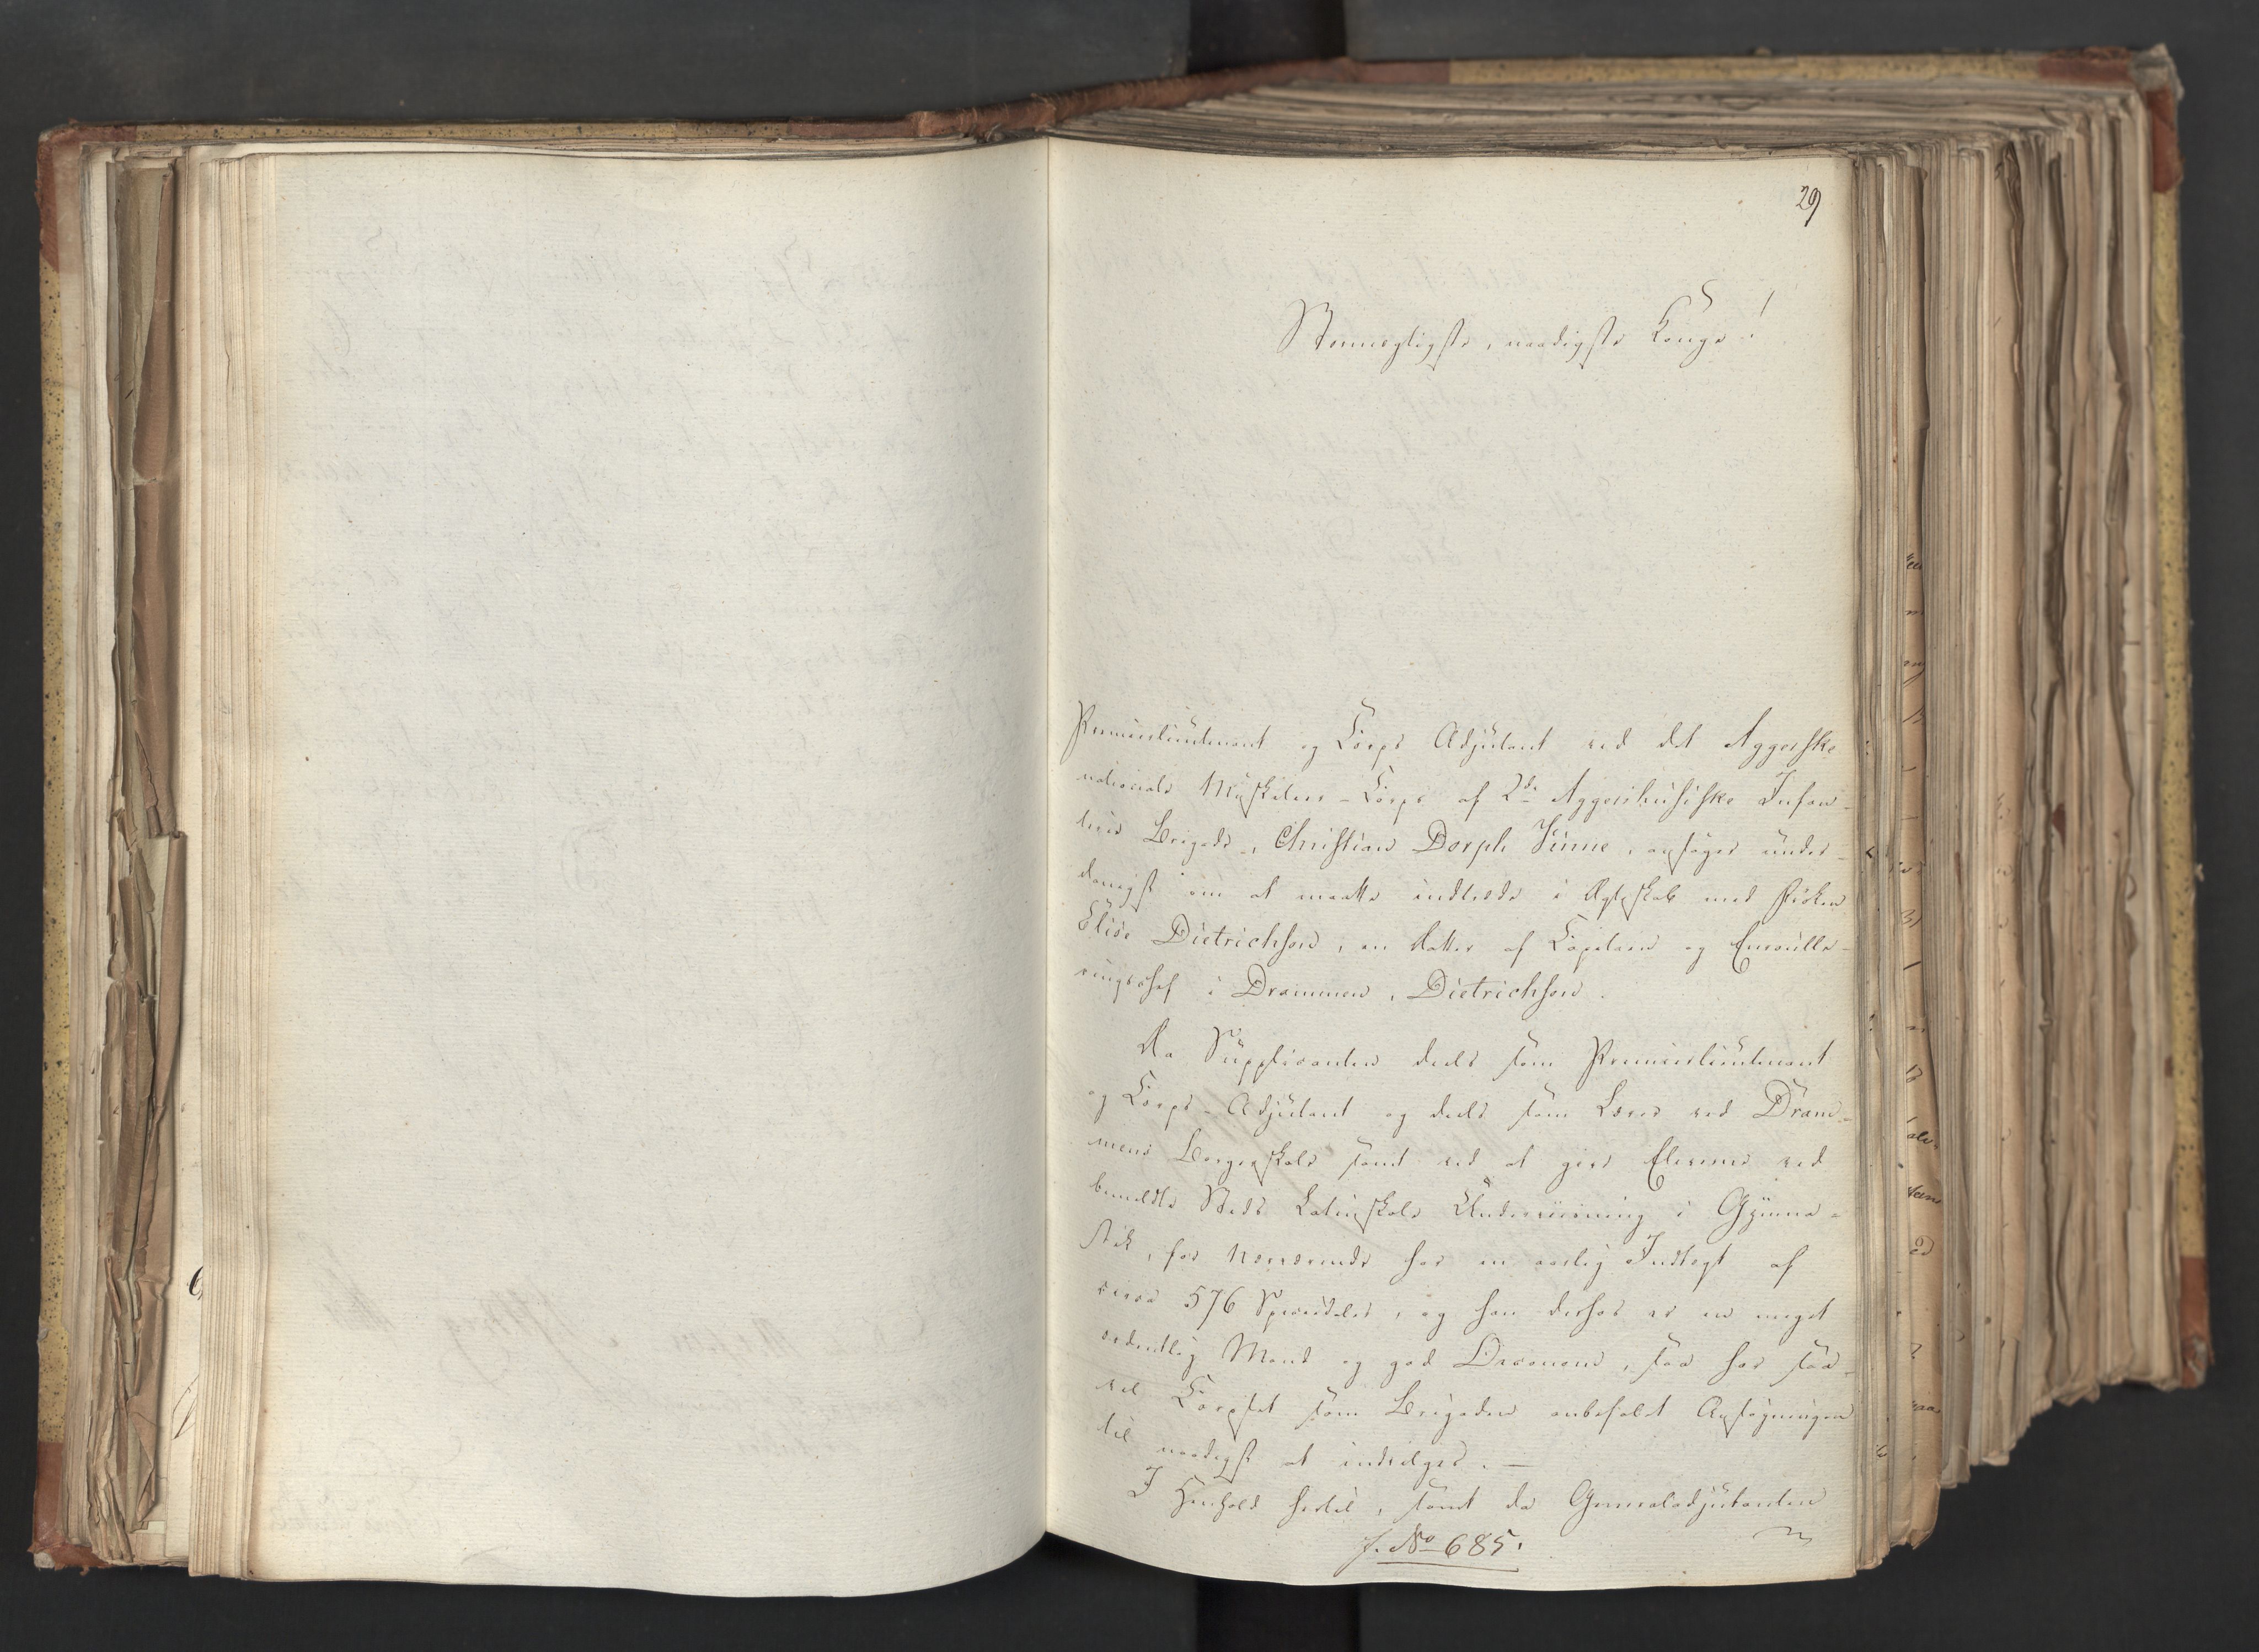 29
Stormægtigste, naadigste Konge!
Premierlieutenant og Corps Adjutant ved det Aggerske
nationale Musketeer-Corps af 2den Aggershusiske Infan-
terie Brigade, Christian Dorph Vinne, ansøger under-
danigst om at maatte indtræde i Ægteskab med Frøken
Elise Dietrichson, en Datter af Capitain og Enroulle-
ringschef i Drammen, Dietrichson.
Da Supplicanten deels som Premierlieutenant
og Corps-Adjutant og deels som Lærer ved Dram-
mens Borgerskole samt ved at give Eleverne ved
bemeldte Steds Latinskole Underviisning i Gymna-
stik, for Nærværende har en aarlig Indtægt af
circa 576 Speciedaler, og han derhos er en meget
ordentlig Mand og god Oeconom, saa har saa-
vel Corpset som Brigaden anbefalet Ansøgningen
til naadigst at indvilges. —
I Henhold hertil, samt da Generaladjutanten
J. No 685.